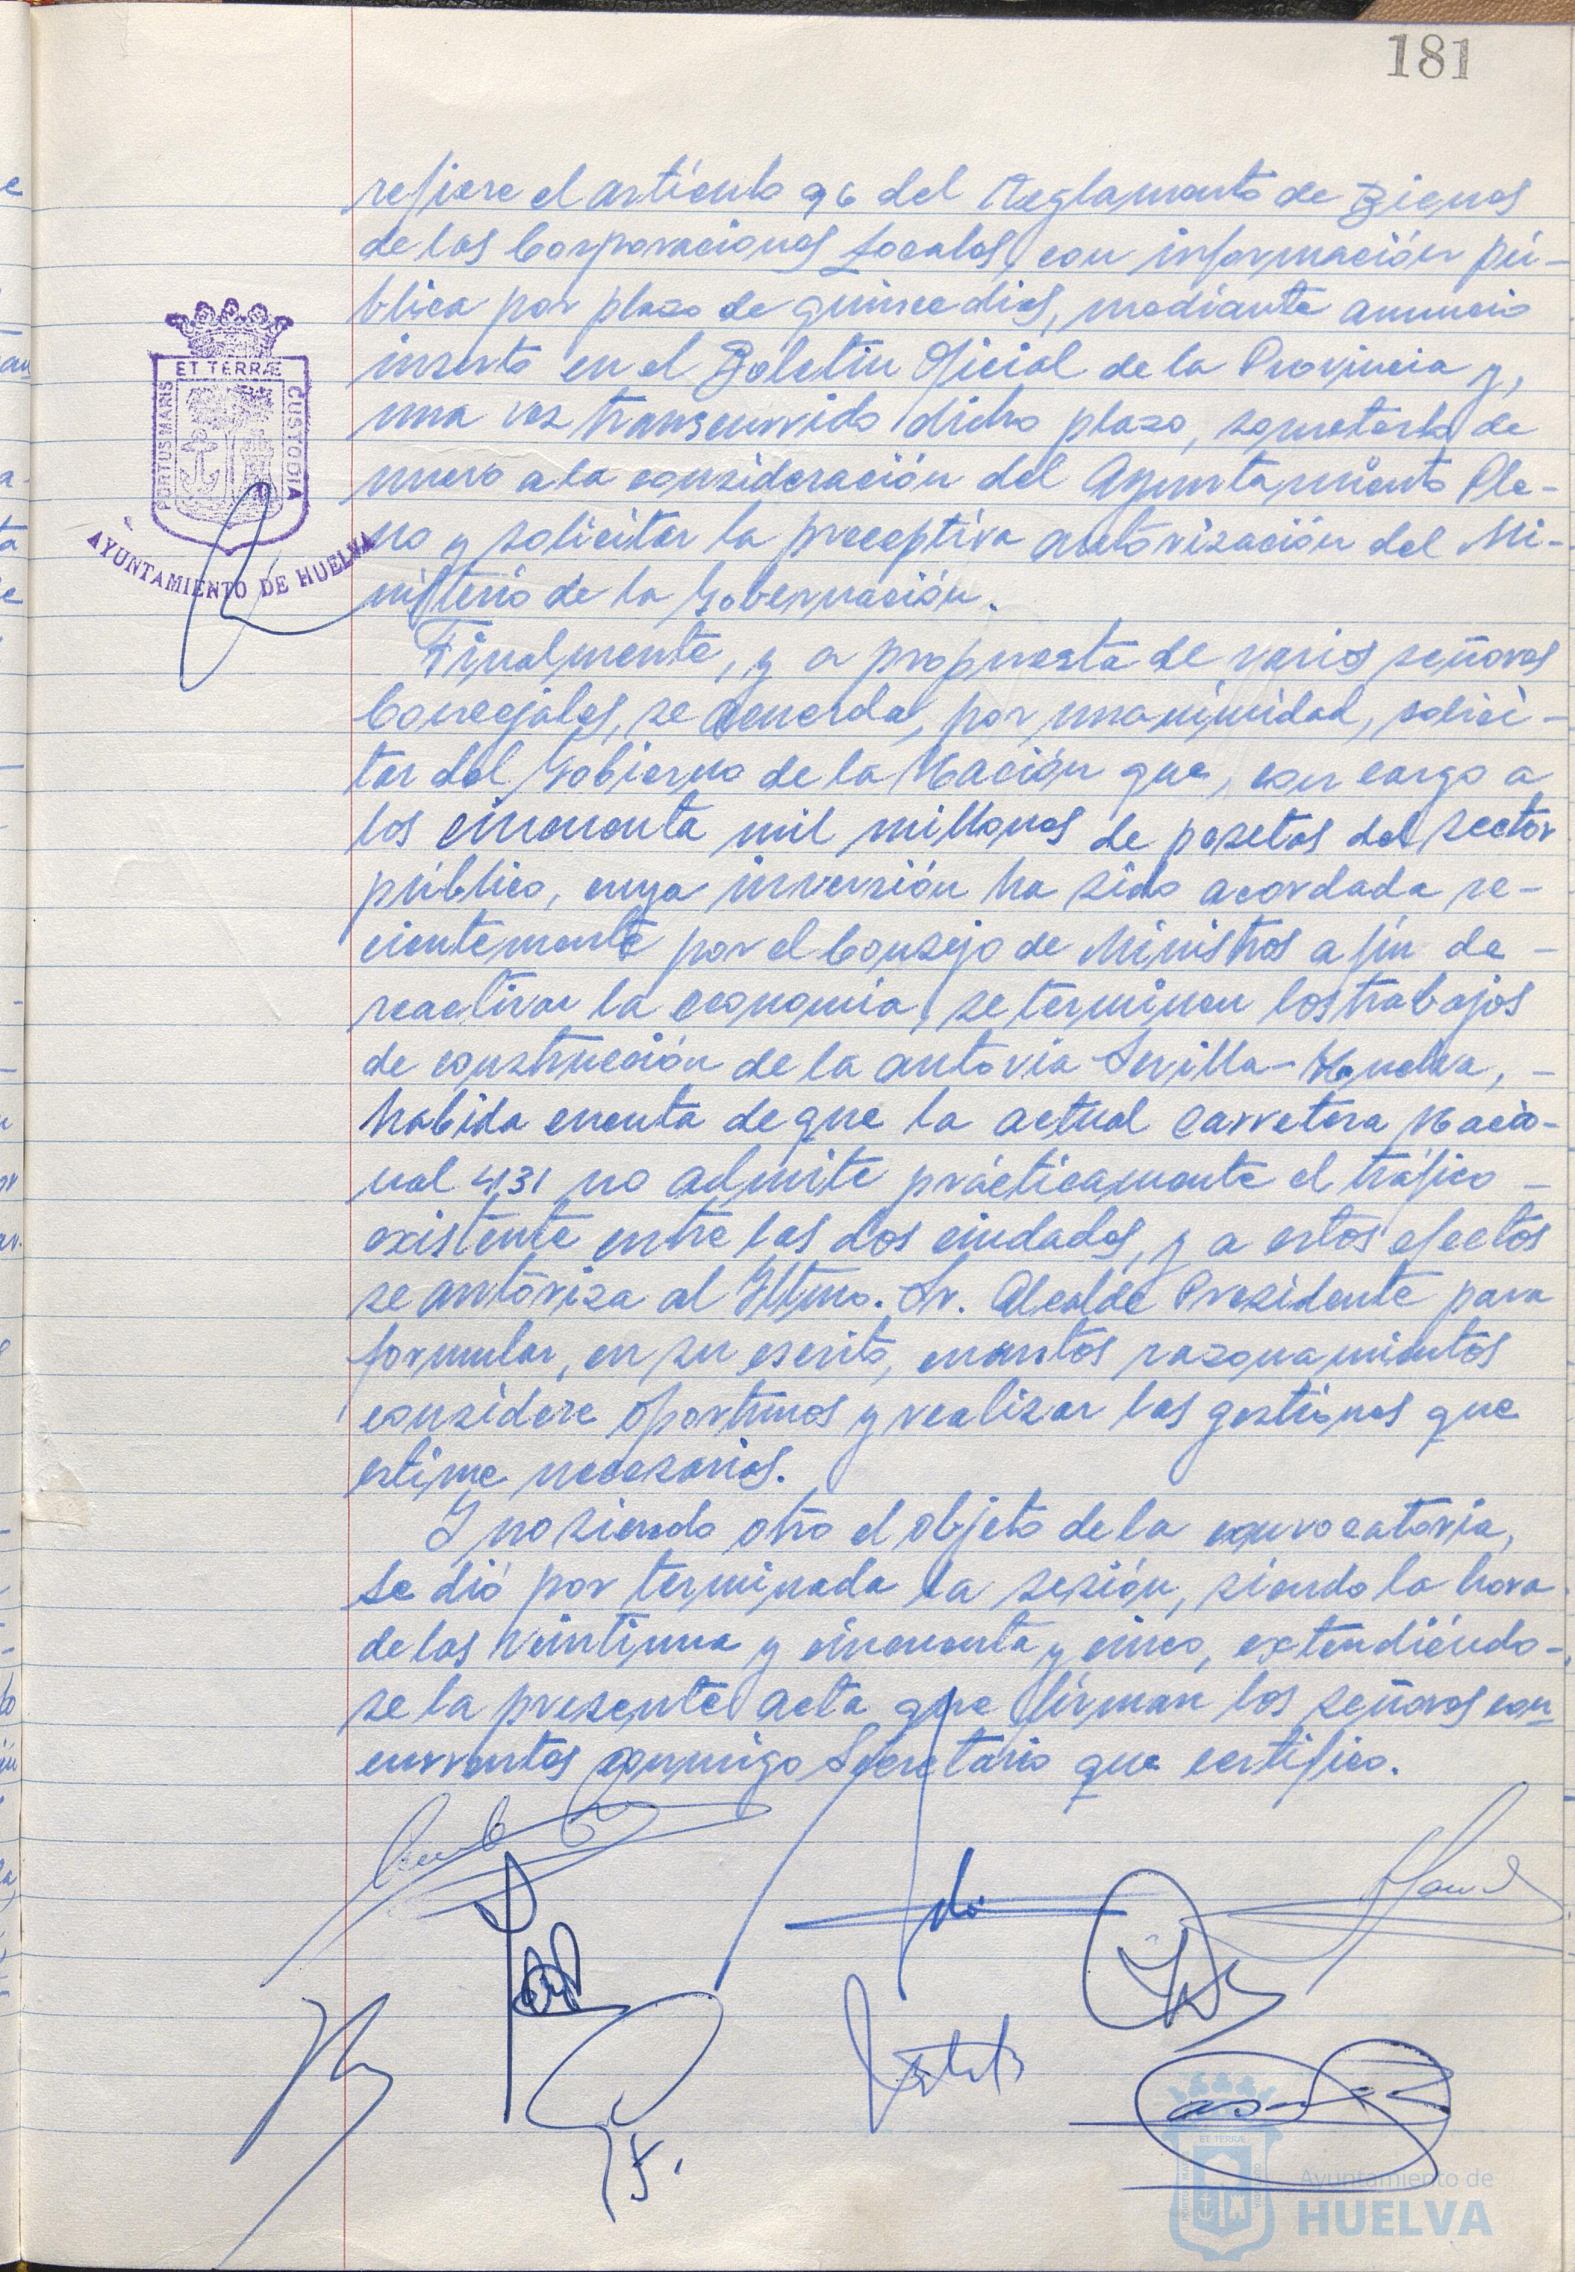 181
refiere el artículo 96 del Reglamento de Bienes
de las Corporaciones Locales, con información pú-
blica por plazo de quince dias, mediante anuncio
inserto en el Boletin Oficial de la Provincia y,
una vez transcurrido dicho plazo, someterlo de
nuevo a la consideración del Ayuntamiento Ple-
no y solicitar la preceptiva autorización del Mi-
nisterio de la Gobernación.
Finalmente, y a propuesta de varios señores
Concejales, se acuerda, por unanimidad, solici-
tar del Gobierno de la Nación que, con cargo a
los cincuenta mil millones de pesetas del sector
público, cuya inversión ha sido acordada re-
cientemente por el Consejo de Ministros a fin de -
reactivar la economía, se terminen los trabajos
de construcción de la autovía Sevilla-Huelva, -
habida cuenta de que la actual carretera Nacio-
nal 431 no admite prácticamente el tráfico -
existente entre las dos ciudades, y a estos efectos
se autoriza al Iltmo. Sr. Alcalde Presidente para
formular, en su escrito, cuantos razonamientos
considere oportunos y realizar las gestiones que
estime necesarias.
Y no siendo otro el objeto de la convocatoria,
se dió por terminada la sesión, siendo la hora
de las veintiuna y cincuenta y cinco, extendiéndo-
se la presente acta que firman los señores con-
currentes conmigo Secretario que certifico.
PORTUS MARIS ET TERRÆ CUSTODIA
AYUNTAMIENTO DE HUELVA
Ayuntamiento de
HUELVA